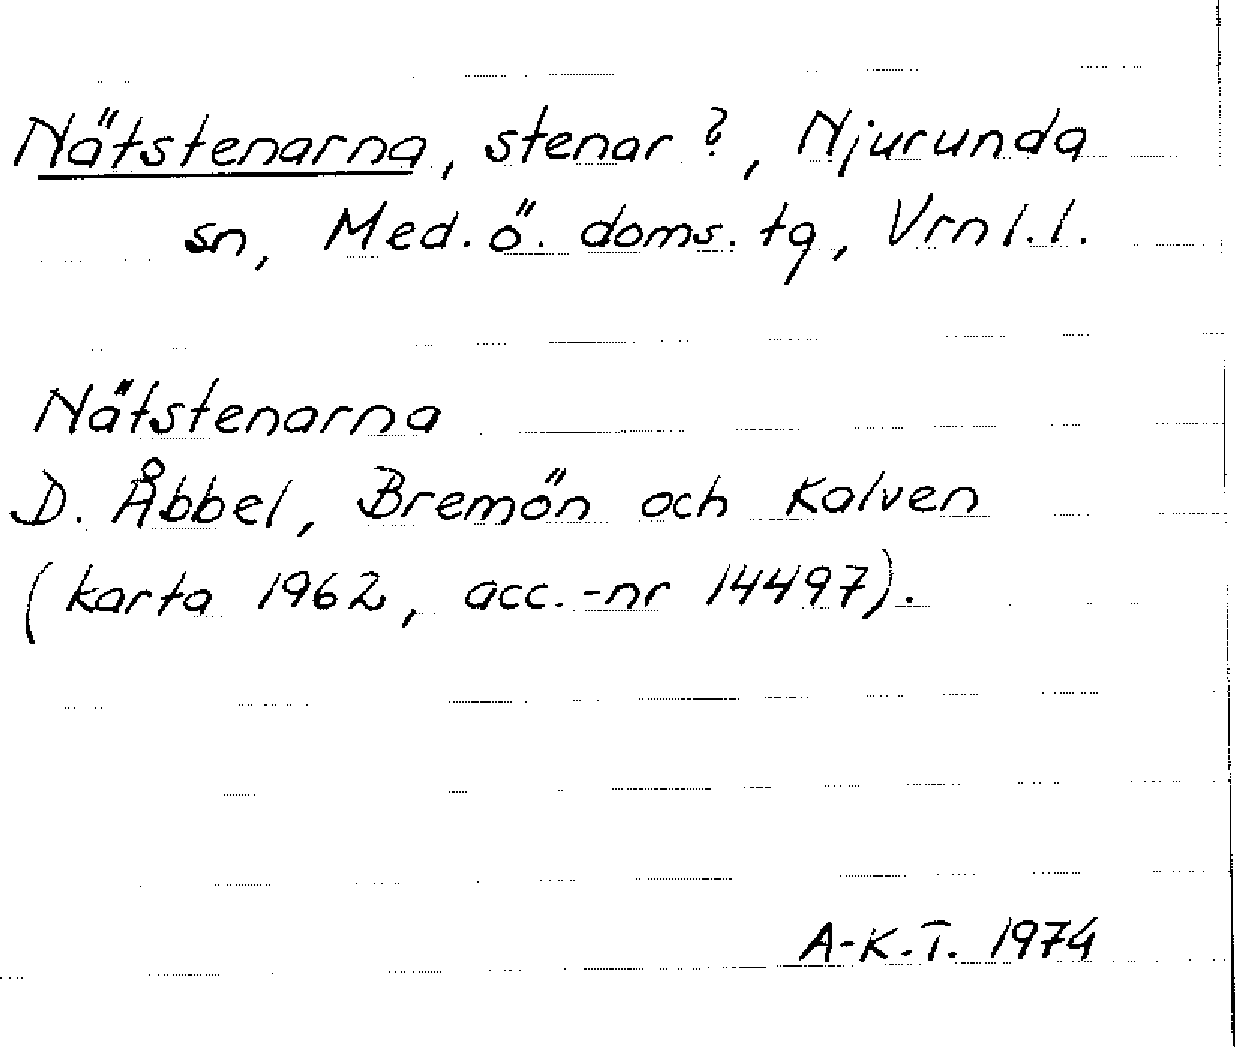 Nätstenarna, stenar ?, Njurunda
sn, Med. ö. doms. tg, Vrnl. l.
Nätstenarna
D. Åbbel, Bremön och Kalven
(karta 1962, acc.-nr 14497).
A-K.T. 1974